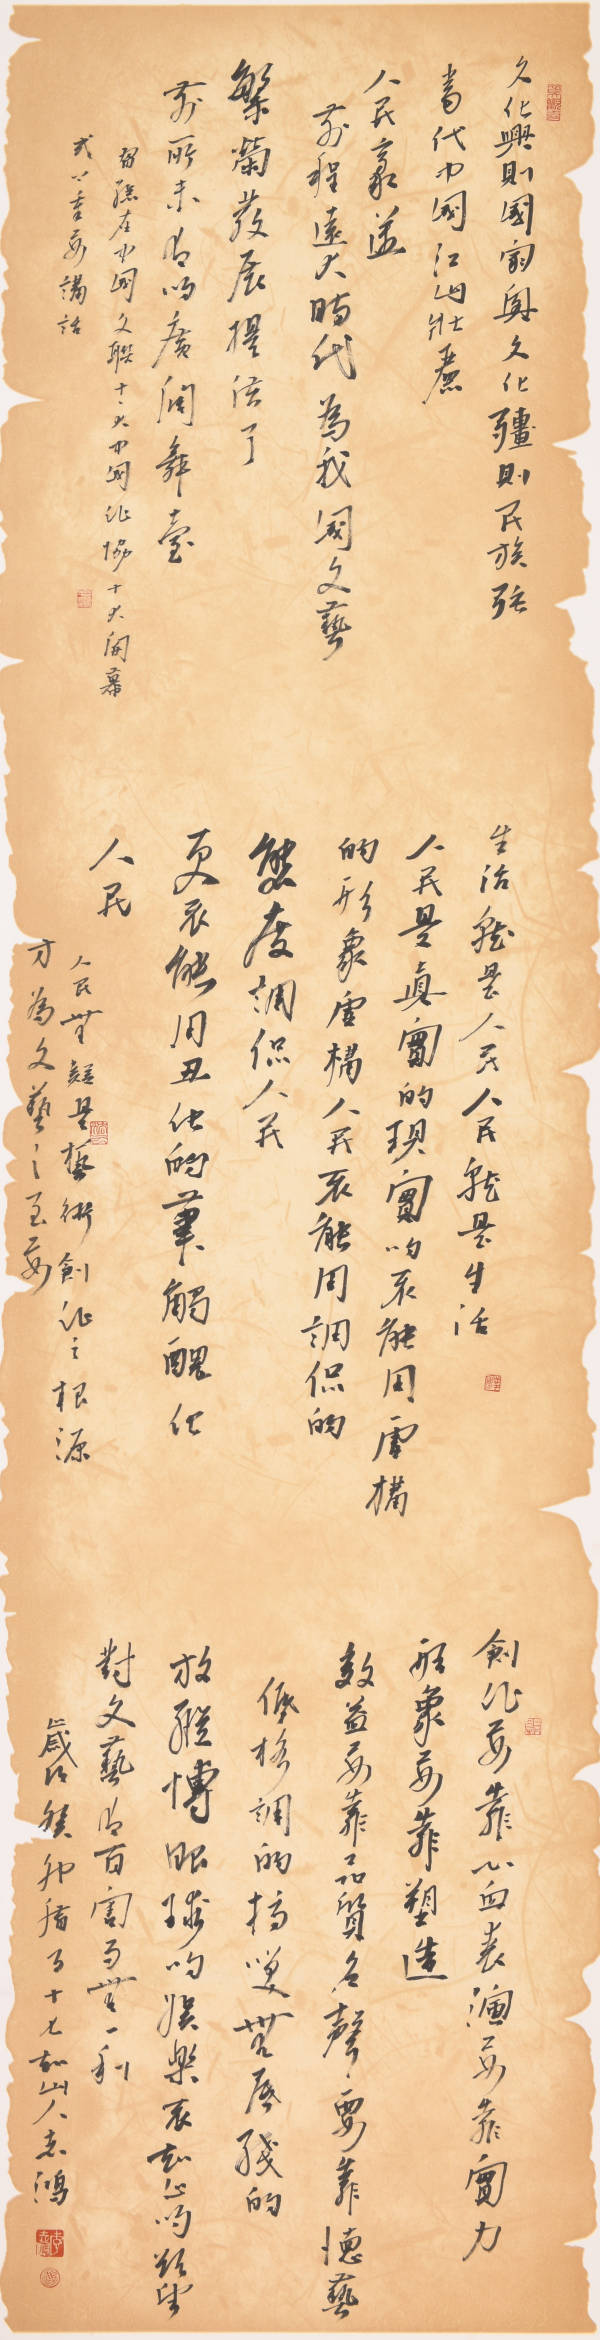 文化興則國家興文化彊則民族強
當代中國江山壯麗
人民豪邁
前程遠大時代為我國文藝
繁榮發展提供了
前所未有的廣闊舞臺
習總在中國文聯十一大中國作協十大開幕
式上重要講話
生活就是人民人民就是生活
人民是真實的現實的不能用虛構
的形象虛構人民不能用調侃的
態度調侃人民
更不能用丑化的筆觸醜化
人民
人民無疑是藝術創作之根源
方為文藝之至要
創作要靠心血表演要靠實力
形象要靠塑造
效益要靠品質名聲要靠德藝
低格調的搞笑無底線的
放縱博眼球的娛樂不知止的欲望
對文藝有百害而無一利
歲次癸卯
十七
山人志鴻